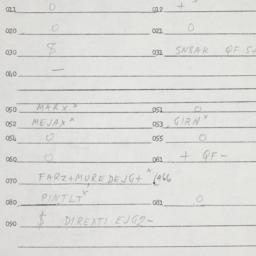 011 0 012 +
020 0 021 0
030 8 031 SNBAK QF
040 —
050 MARX* 051 0
052 MEJAX* 053 GIRN*
054 0 055 0
060 0 061 + QF-
070 FARZ+MURE DEJG+*
080 PINTLT* 081 0
090 $ DIREXTI EJG2-